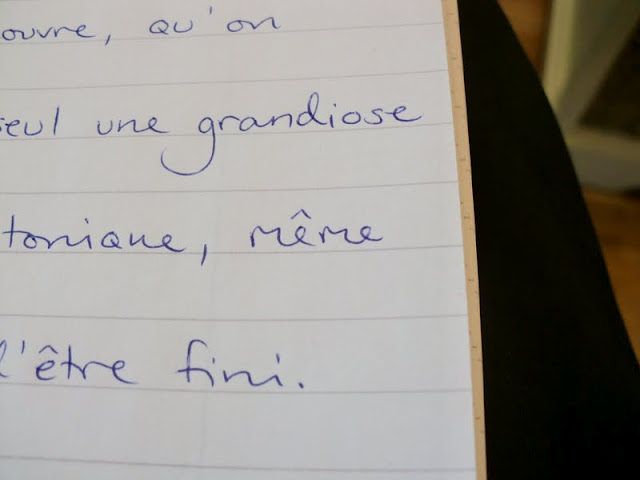 ouvre, qu'on
seul une grandiose
tonique, même
l'être fini.